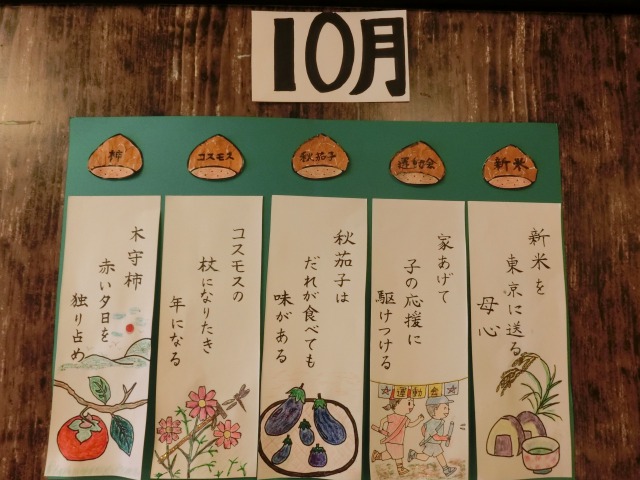 10月
新米
運動会
秋茄子
コスモス
柿
新米を
東京に送る
母心
家あげて
子の応援に
駆けつける
運動会
秋茄子は
だれが食べても
味がある
コスモスの
杖になりたき
年になる
木守柿
赤い夕日を
独り占め